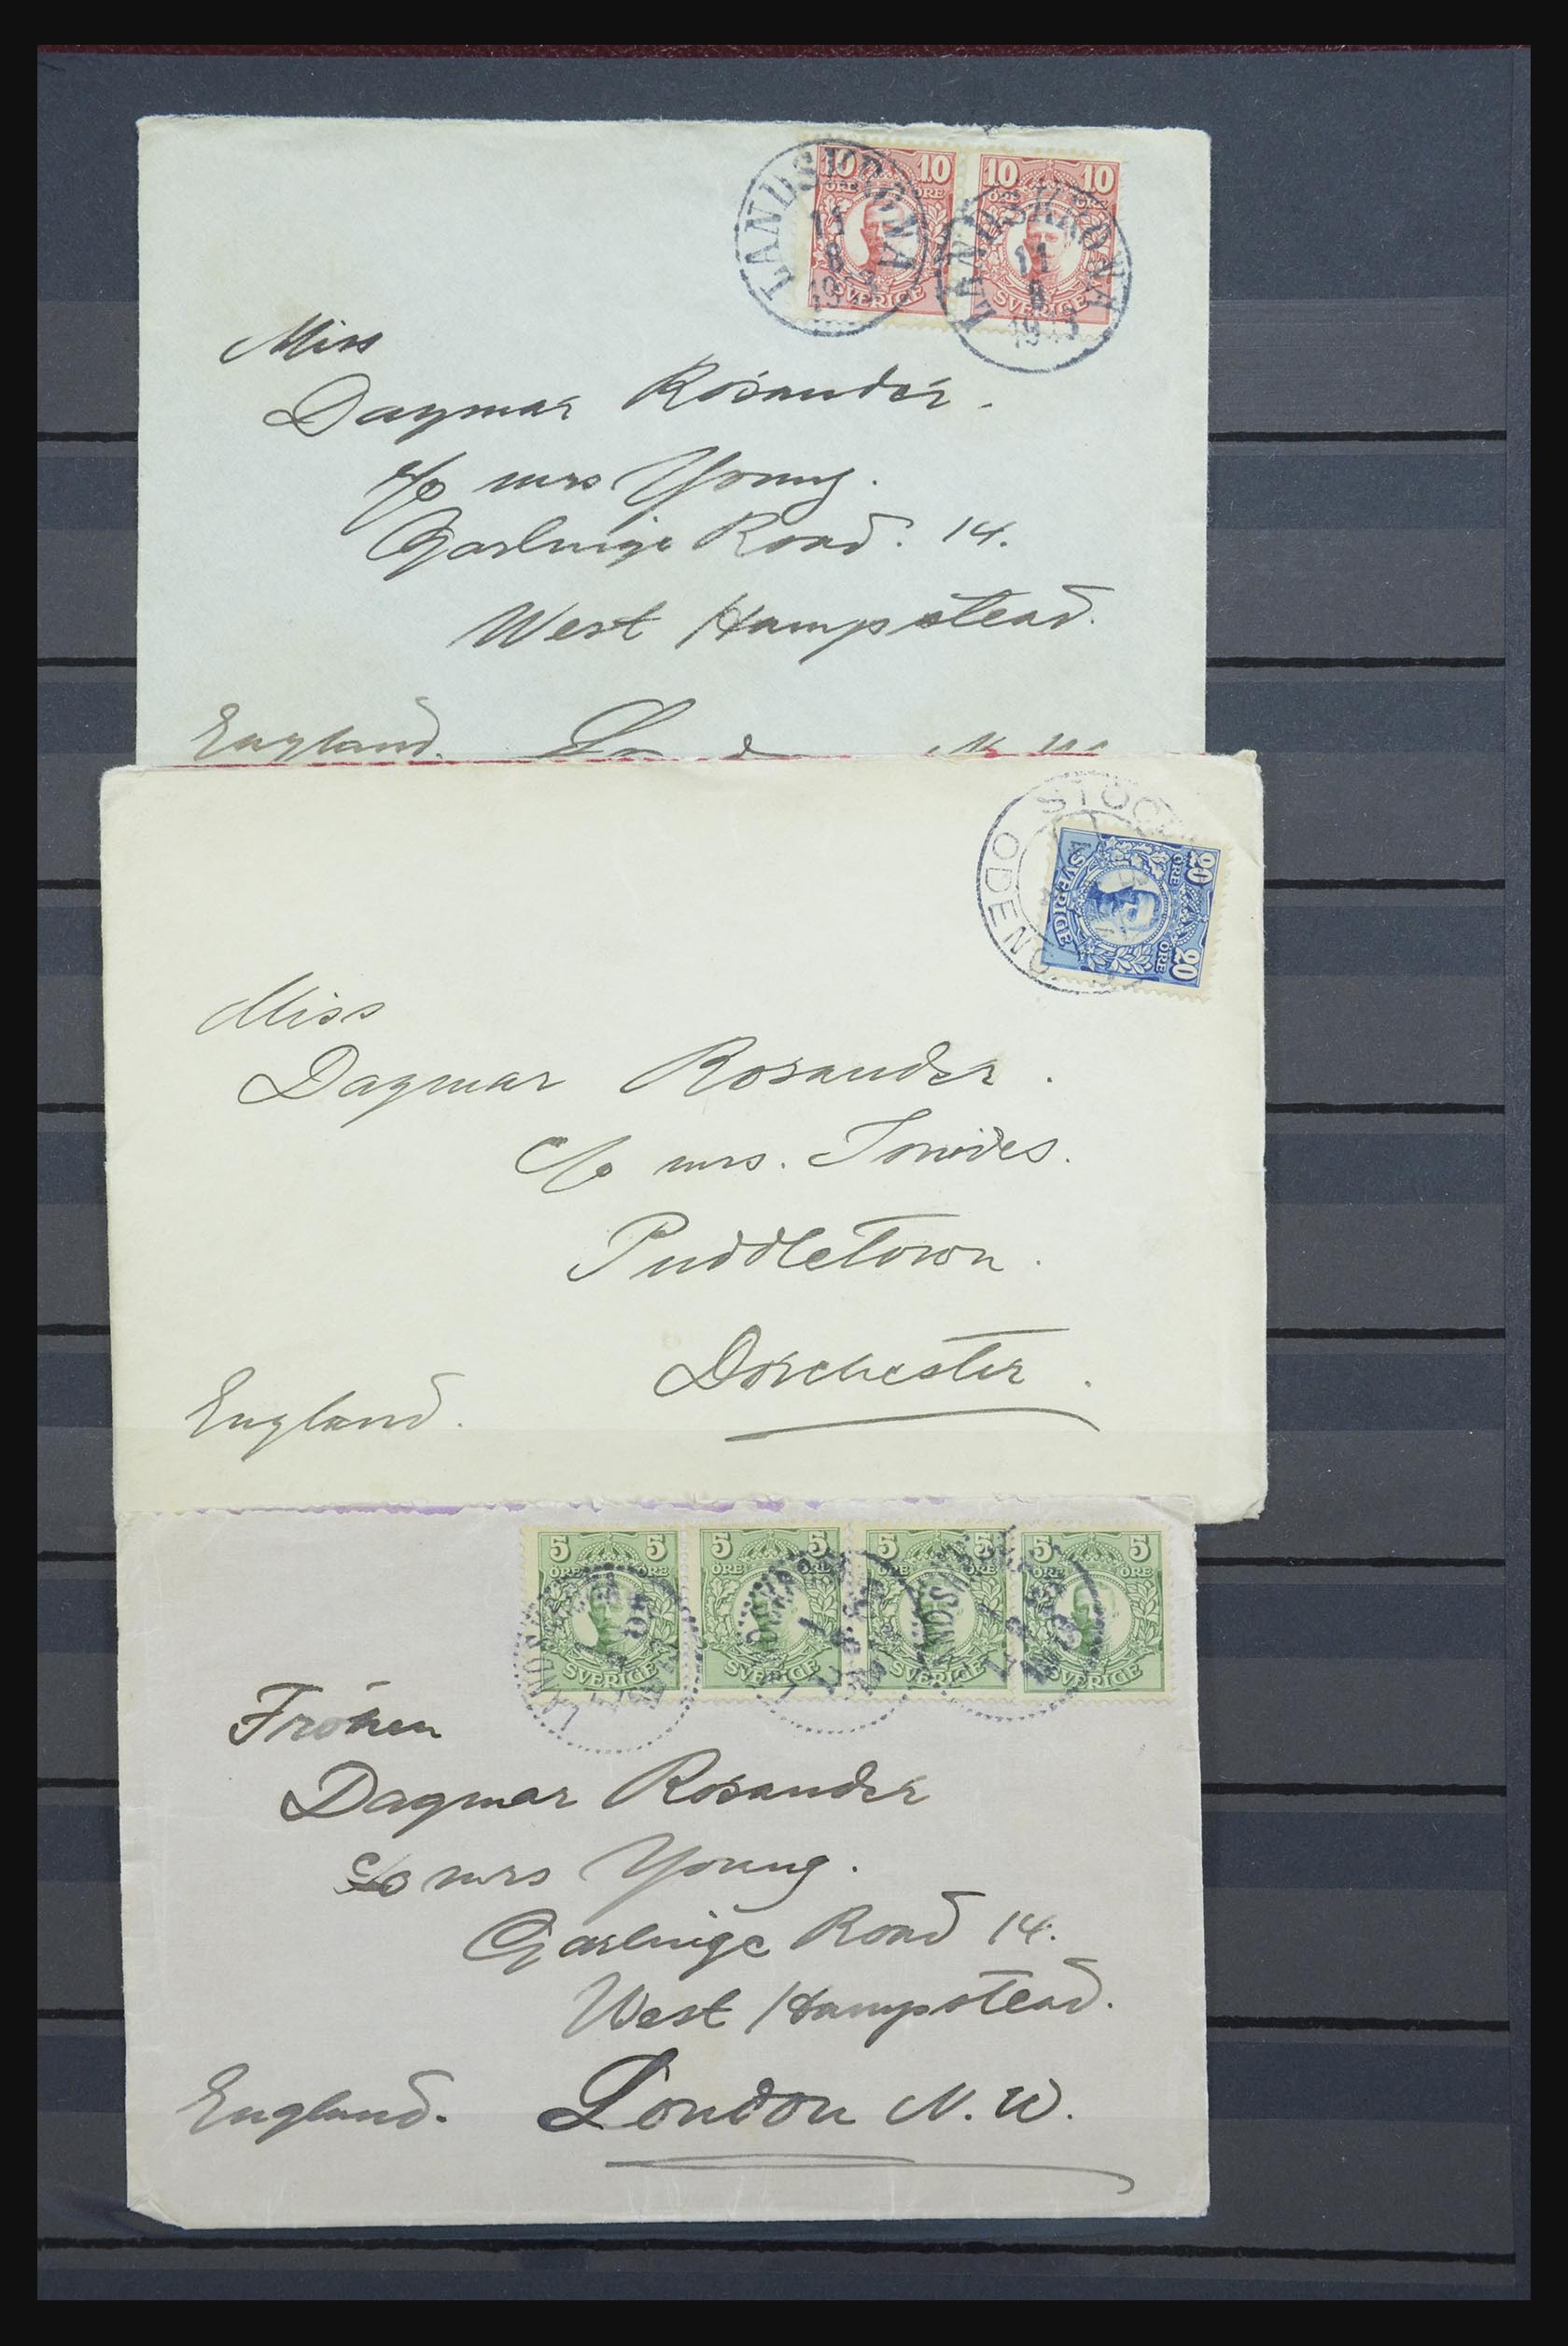 10 10 10 10
ÖRE ÖRE ÖRE ÖRE
SVERIGE SVERIGE
LANDSKRONA
11
8
LANDSKRONA
11
8
1913
Miss
Dagmar Rosander.
c/o mrs Young.
Garlinge Road. 14.
West Hampstead.
England.
20 20
ÖRE ÖRE
SVERIGE
ODEN
Miss
Dagmar Rosander.
c/o mrs. Ionides.
Puddletown.
Dorchester.
England.
5 5 5 5 5 5 5 5
ÖRE ÖRE ÖRE ÖRE ÖRE ÖRE
SVERIGE SVERIGE SVERIGE SVERIGE
Fröken
Dagmar Rosander
c/o mrs Young.
Garlinge Road 14.
West Hampstead.
England. London N.W.